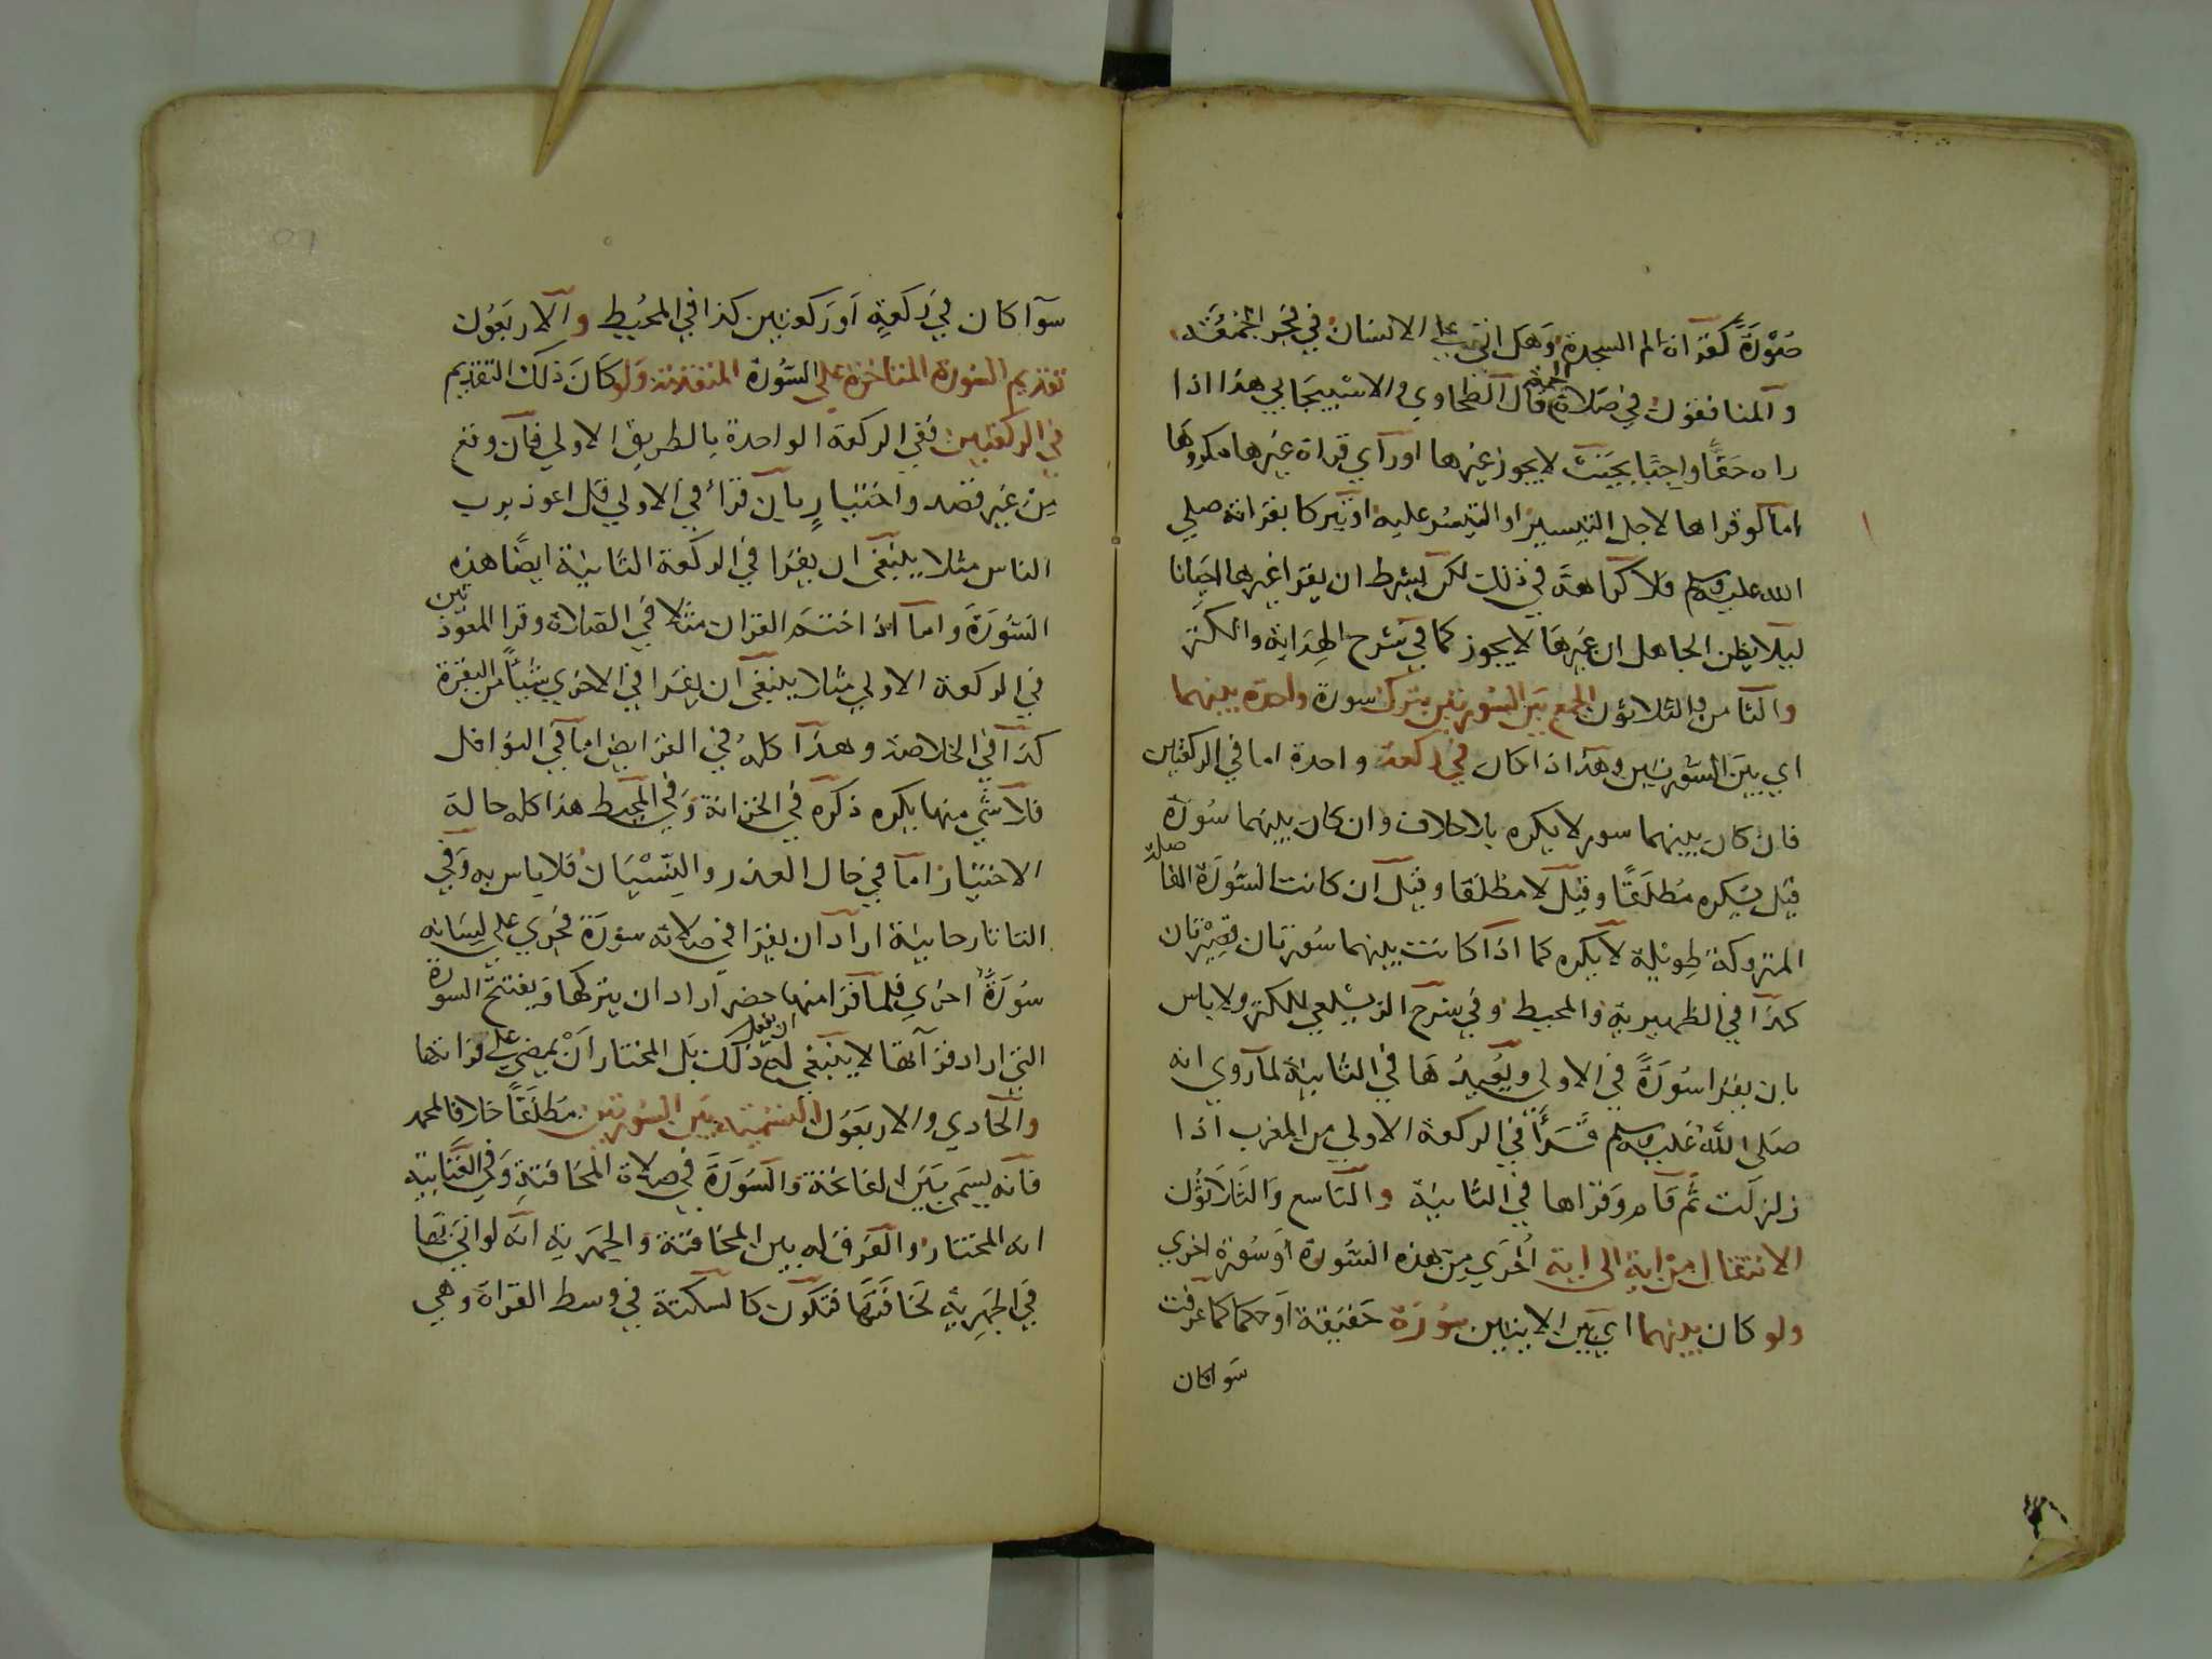 صورة كقراة الم السجدة وهل اتى على الانسان في فجر الجمعة
والمنافقون في صلاة الجمعة قال الطحاوي والاسبيجابي هذا اذا
راه حقا واجبا بحيث لا يجوز غيرها او راي قراة غيرها مكروها
اما لو قراها لاجل التيسير او التيسر عليه او تبركا بقراته صلى
الله عليه وسلم فلا كراهة في ذلك لكن بشرط ان يقرا غيرها احيانا
ليلا يظن الجاهل ان غيرها لا يجوز كما في شرح الهداية والكنز
والثامن والثلاثون الجمع بين السورتين بترك سورة واحدة بينهما
اي بين السورتين وهذا اذا كان في ركعة واحدة اما في الركعتين
فان كان بينهما سور لا يكره بلا خلاف وان كان بينهما سورة
قيل يكره مطلقا وقيل لا مطلقا وقيل ان كانت السورة الفاصلة
المتروكة طويلة لا يكره كما اذا كانت بينهما سورتان قصيرتان
كذا في الظهيرية والمحيط وفي شرح الزيلعي للكنز ولا باس
بان يقرا سورة في الاولى ويعيدها في الثانية لما روي انه
صلى الله عليه وسلم قرأ في الركعة الاولى من المغرب اذا
زلزلت ثم قام وقراها في الثانية والتاسع والثلاثون
الانتقال من اية الى اية اخرى من هذه السورة او سورة اخرى
ولو كان بينهما اي بين الايتين سورة حقيقة او حكما كما عرفت
سوا كان
سوآ كان في ركعة او ركعتين كذا في المحيط والاربعون
تقديم السورة المتاخرة على السورة المتقدمة ولو كان ذلك التقديم
في الركعتين ففي الركعة الواحدة بالطريق الاولى فان وقع
من غير قصد واختيار بان قرأ في الاولى قل اعوذ برب
الناس مثلا ينبغي ان يقرا في الركعة الثانية ايضا هذه
السورة واما اذا ختم القران مثلا في الصلاة وقرا المعوذتين
في الركعة الاولى مثلا ينبغي ان يقرا في الاخرى شيئا من البقرة
كذا في الخلاصة وهذا كله في الفرايض اما في النوافل
فلا شي منها يكره ذكره في الخزانة وفي المحيط هذا كله حالة
الاختيار اما في حال العذر والنسيان فلا باس به وفي
التاتارخانية اراد ان يقرا في صلاته سورة فجرى على لسانه
سورة اخرى فلما قرا منها حضر اراد ان يتركها ويفتتح السورة
التي اراد قرآتها لا ينبغي له ان يفعل ذلك بل المختار ان يمضي على قراتها
والحادي والاربعون التسمية بين السورتين مطلقا خلافا لمحمد
فانه يسمى بين الفاتحة والسورة في صلاة المخافتة وفي العتابية
انه المختار والفرق له بين المخافتة والجهرية انه لو اتى بها
في الجهرية مخافتها فتكون كالسكتة في وسط القراة وهي